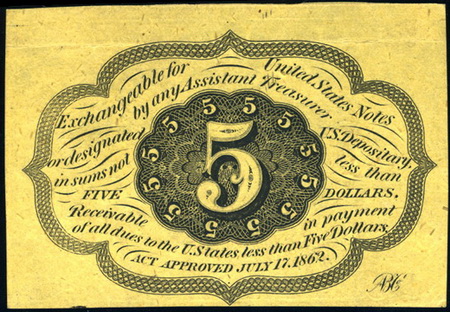 Exchangeable for United States Notes
by any Assistant Treasurer
or designated U.S. Depositary,
in sums not less than
FIVE DOLLARS.
Receivable in payment
of all dues to the U. States less than Five Dollars.
ACT APPROVED JULY 17. 1862.
5
5 5 5 5 5 5 5 5 5 5 5 5 5
ABCo